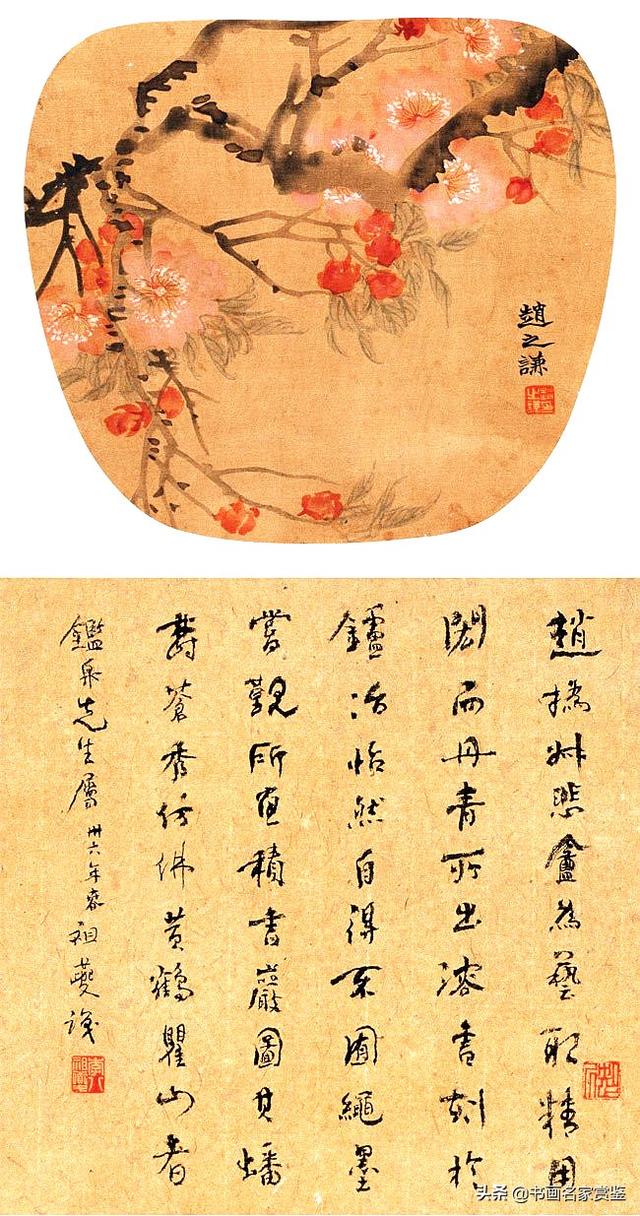 趙之謙
趙撝叔悲盦為藝取精用
閎而丹青所出溶書刻於
鑪冶怡然自得不囿繩墨
嘗觀所畫積書巖圖其蟠
鬱蒼秀仿佛黃鶴瞿山者
鑑泉先生屬 卅六年春 祖夔識
头条 @书画名家赏鉴